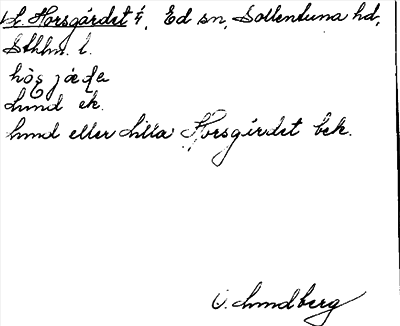 L. Horsgärdet 4, Ed sn, Sollentuna hd,
Sthlm. l.
hös jæfe
Lund ek.
Lund eller Lilla Horsgärdet bek.
Lundberg